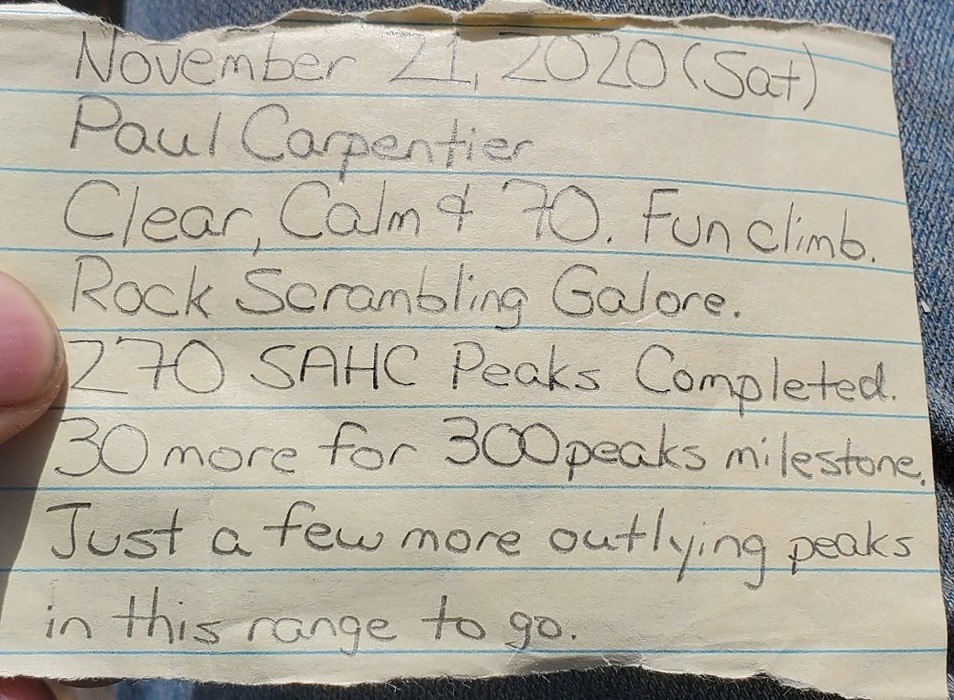 November 21, 2020 (Sat)
Paul Carpentier
Clear, Calm & 70. Fun climb.
Rock Scrambling Galore.
270 SAHC Peaks Completed.
30 more for 300 peaks milestone.
Just a few more outlying peaks
in this range to go.